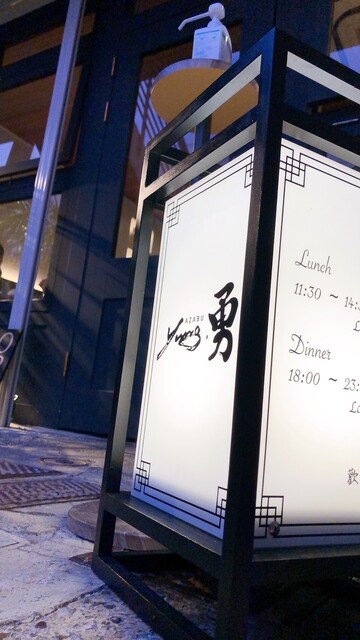 AZABU
Yung.
勇
Lunch
11:30 ~ 14:3
L
Dinner
18:00 ~ 23:
Lo
歓